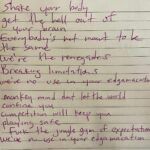 Shake your body
get the hell out of
your brain
Everybody's not meant to be
the same
We're the renegades
Breaking limitations
we're no use in your edgamacation
monkey mind dont let the world
confine you
competition will keep you
playing safe
Fuck the jungle gym of expectation
we're no use in your edgamacation